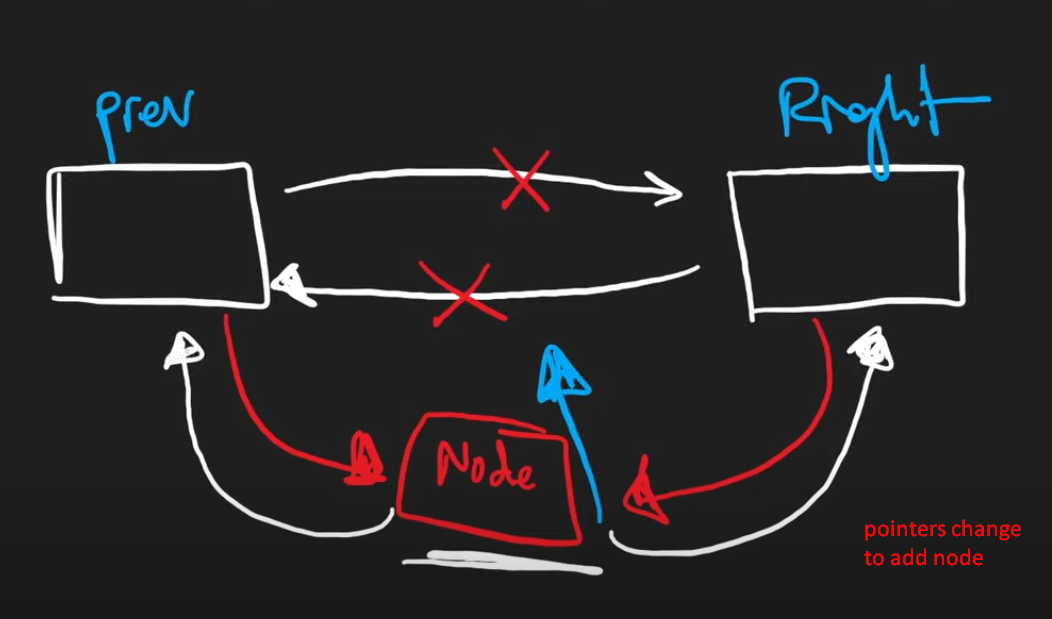 prev
Right
Node
pointers change
to add node